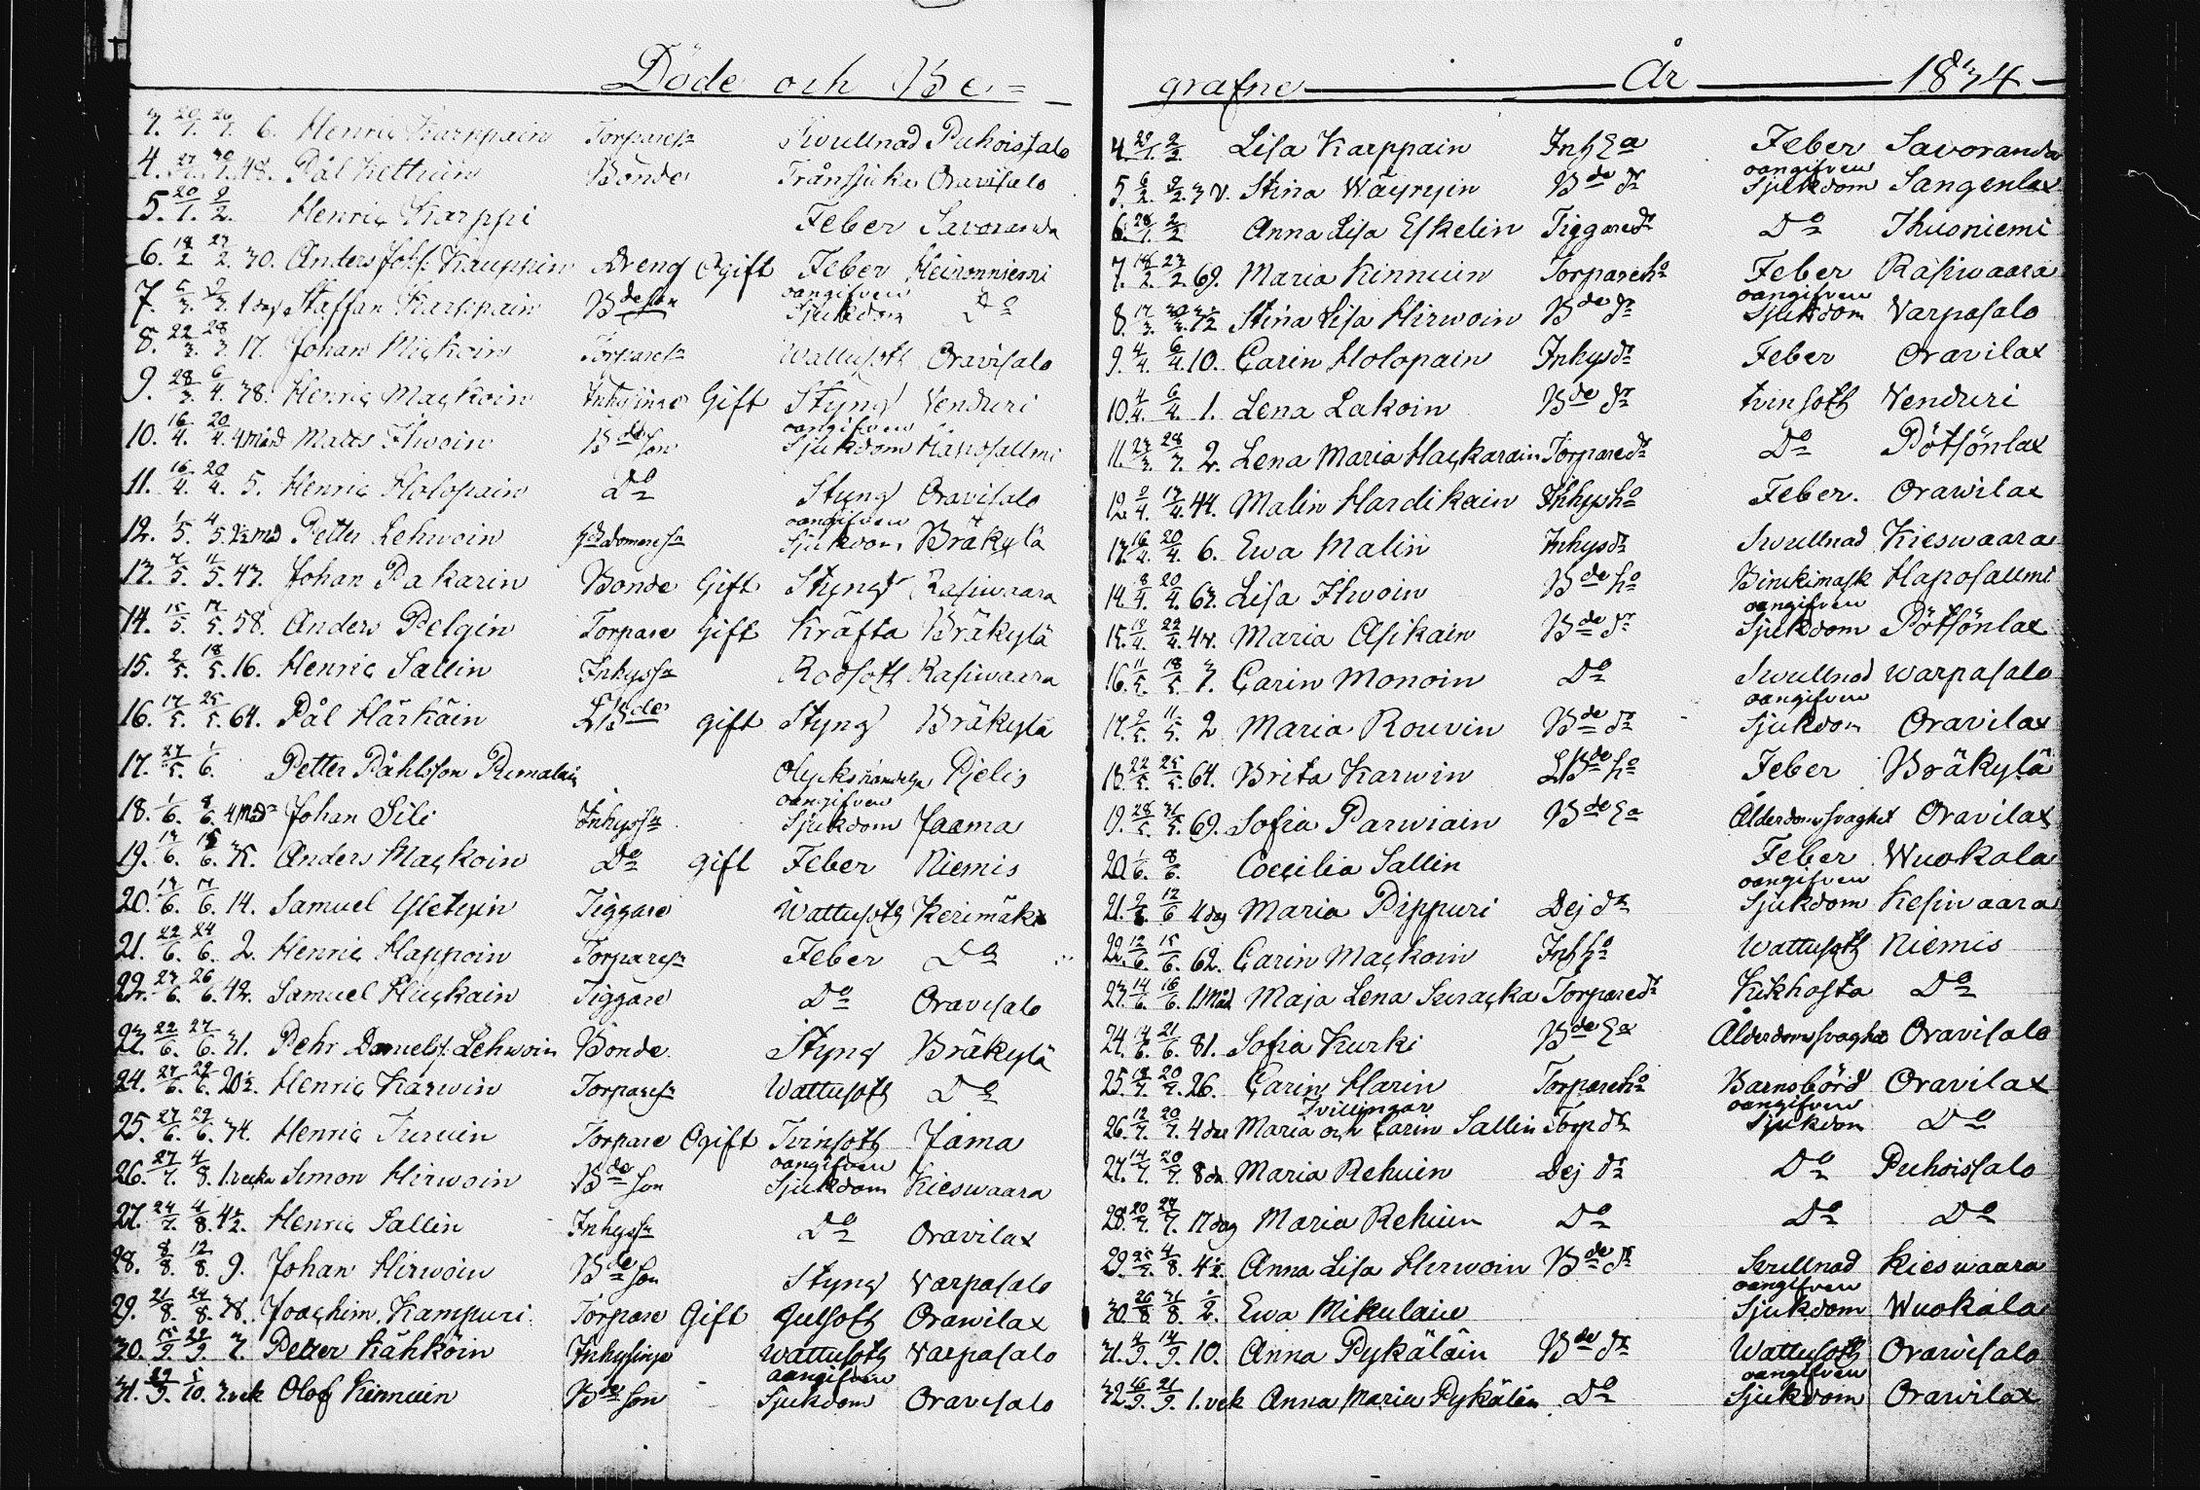 Döde och Be=
3. 20/1. 26/1. 6. Henric Karppain Torparesn Swullnad Puhoissalo
4. 27/1. 30/1. 48. Pål Kettuin Bonde Trånsjuka Oravisalo
5. 20/1. 9/2. Henric Karppi Feber Savoranda
6. 18/2 23/2. 30. Anders Johs: Kauppin Dreng Ogift Feber Heinoniemi
7. 5/3. 9/3. 1 dag Staffan Karppain Bdeson oangifven Sjukdom Do
8. 22/3. 28/3. 17. Johan Mickoin Torparesn Wattusoth Oravisalo
9. 28/3. 6/4. 38. Henric Mackoin Inhysinge Gift Styng Venduri
10. 16/4. 20/4. 4 Månd Matts Ihwoin Bde son oangifven Sjukdom Haposallmi
11. 16/4. 20/4. 5. Henric Holopain Do Styng Oravisalo
12. 1/5. 4/5. 2½ Md Petter Lehwoin oangifven Sjukdom Bräkylä
13. 7/5. 11/5. 43. Johan Pakarin Bonde Gift Styng Rasiwaara
14. 15/5. 17/5. 58. Anders Pelgin Torpare Gift Kräfta Bräkylä
15. 9/5. 18/5. 16. Henric Sallin Inhyssn Rodsoth Rasiwaara
16. 17/5. 25/5. 64. Pål Härkäin LBde gift Styng Bräkylä
17. 27/5. 1/6. Petter Påhlsson Rimalain Olyckshändelse Pjelis
18. 1/6. 8/6. 4 Md Johan Sili Inhyssn oangifven Sjukdom Jaama
19. 13/6. 15/6. 35. Anders Mackoin Do gift Feber Niemis
20. 13/6. 17/6. 14. Samuel Yletyin Tiggare Wattusoth Kerimäki
21. 22/6. 24/6. 2. Henric Happoin Torparesn Feber Do
22. 23/6. 26/6. 42. Samuel Huckain Tiggare Do Oravisalo
23. 22/6. 27/6. 31. Pehr Danielss: Lehwoin Bonde Styng Bräkylä
24. 27/6. 29/6. 20½. Henric Karwin Torparesn Wattusoth Do
25. 27/6. 29/6. 34. Henric Turuin Torpare Ogift Tvinsoth Jama
26. 27/7. 4/8. 1. vecka Simon Hirwoin Bde son oangifven Sjukdom Kieswaara
27. 24/7. 4/8. 4½. Henric Sallin Inhyssn Do Oravilax
28. 8/8. 12/8. 9. Johan Hirwoin Bde son Styng Varpasalo
29. 21/8. 24/8. 38. Joachim Kampuri Torpare Gift Gulsoth Orawilax
30. 15/9. 22/9. 3. Petter Kähköin Inhysinge Wattusoth Varpasalo
31. 29/9. 5/10. 3 vek Olof Kinnuin Bde son oangifven Sjukdom Oravisalo
grafne År 1834
4. 29/1. 2/2. Lisa Karppain Inh Ea Feber Savoranda
5. 6/2. 9/2. 3 v. Stina Wäyryin Bde dr oangifven Sjukdom Sangenlax
6. 28/1. 2/2 Anna Lisa Eskelin Tiggaredr Do Thusniemi
7. 18/2. 23/2. 69. Maria Kinnuin Torpareho Feber Rasiwaara
8. 17/3. 30/3. 12 Stina Lisa Hirwoin Bde dr oangifven Sjukdom Varpasalo
9. 4/4. 6/4. 10. Carin Holopain Inhysdr Feber Oravilax
10. 4/4. 6/4. 1. Lena Lakoin Bde dr tvinsoth Venduri
11. 23/3. 28/3. 2. Lena Maria Hackarain Torparedr Do Pötsönlax
12. 9/4. 13/4. 44. Malin Hardikain Inhysho Feber. Orawilax
13. 16/4. 20/4. 6. Ewa Malin Inhysdr Swullnad Kieswaara
14. 8/4. 20/4. 63. Lisa Ihwoin Bde ho Binikimask Haposallmi
15. 19/4. 22/4. 4 v. Maria Asikain Bde dr oangifven Sjukdom Pötsönlax
16. 11/5. 18/5. 3. Carin Monoin Do Swullnad Warpasalo
17. 9/5. 11/5. 2 Maria Rouvin Bde dr oangifven Sjukdom Oravilax
18. 22/5. 25/5. 64. Brita Karwin LBde ho Feber Bräkylä
19. 28/5. 31/5. 69. Sofia Parwiain Bde Ea Ålderdomssvaghet Oravilax
20. 1/6. 8/6. Coecilia Sallin Feber Wuokala
21. 12/6 4 dag Maria Pippuri Dej dr oangifven Sjukdom Kesiwaara
22. 12/6. 15/6. 62. Carin Mackoin Inh ho Wattusoth Niemis
23. 14/6. 16/6. 11 Mån Maja Lena Suracka Torparedr Kikhosta Do
24. 14/6. 21/6. 81. Sofia Kurki Bde Ea Ålderdomssvaghet Oravisalo
25. 18/7. 20/7. 26. Carin Harin Torpareho Barnsbörd Oravilax
26. 12/7. 20/7. 4 dar Tvillingar Maria och Carin Sallin Torp dr oangifven Sjukdom Do
27. 14/7. 20/7. 8 da Maria Rehuin Dej dr Do Puhoissalo
28. 20/7. 27/7. 17 dag Maria Rehuin Do Do Do
29. 25/7. 4/8. 4½. Anna Lisa Hirwoin Bde dr Swullnad Kieswaara
30. 26/8 31/8. ½. Ewa Mikulain oangifven Sjukdom Wuokala
31. 4/9. 14/9. 10. Anna Pykäläin Bde dr Wattusoth Orawisalo
32. 16/9. 21/9. 1. vek Anna Maria Pykälän Do oangifven Sjukdom Orawilax